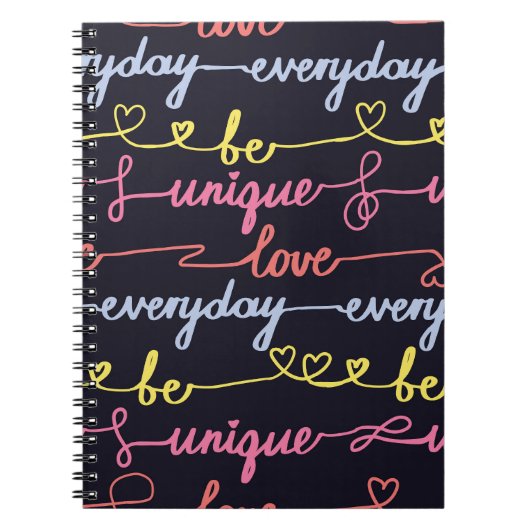 love
ryday everyday
be
unique u
love
everyday every
be be
unique u
love